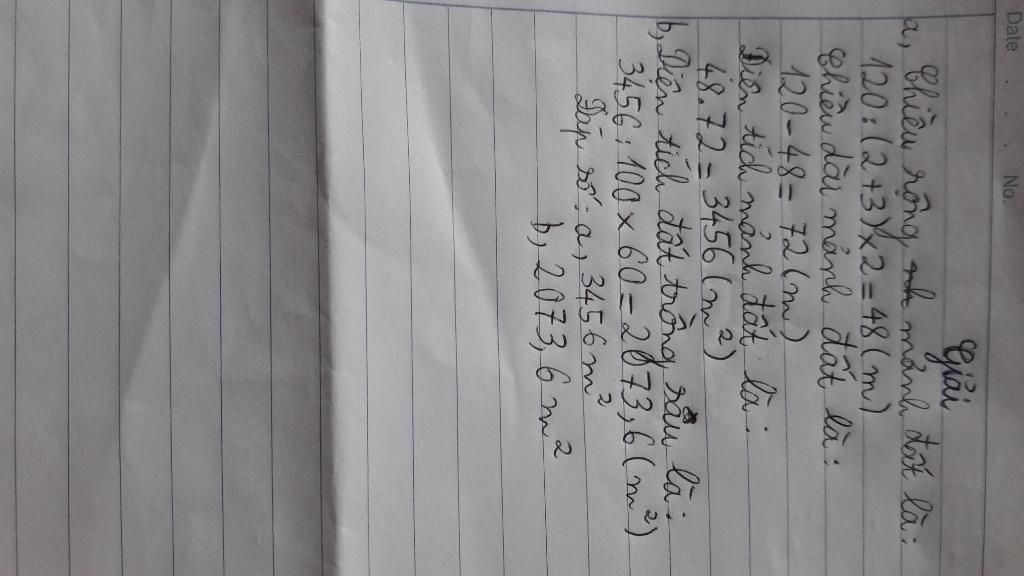 Date . . . No.
Giải
a, Chiều rộng mảnh đất là:
120 : (2+3) x 2 = 48 (m)
Chiều dài mảnh đất là:
120 - 48 = 72 (m)
Diện tích mảnh đất là:
48 . 72 = 3456 (m²)
b, Diện tích đất trồng rau là:
3456 : 100 x 60 = 2073,6 (m²)
Đáp số: a, 3456 m²
b, 2073,6 m²